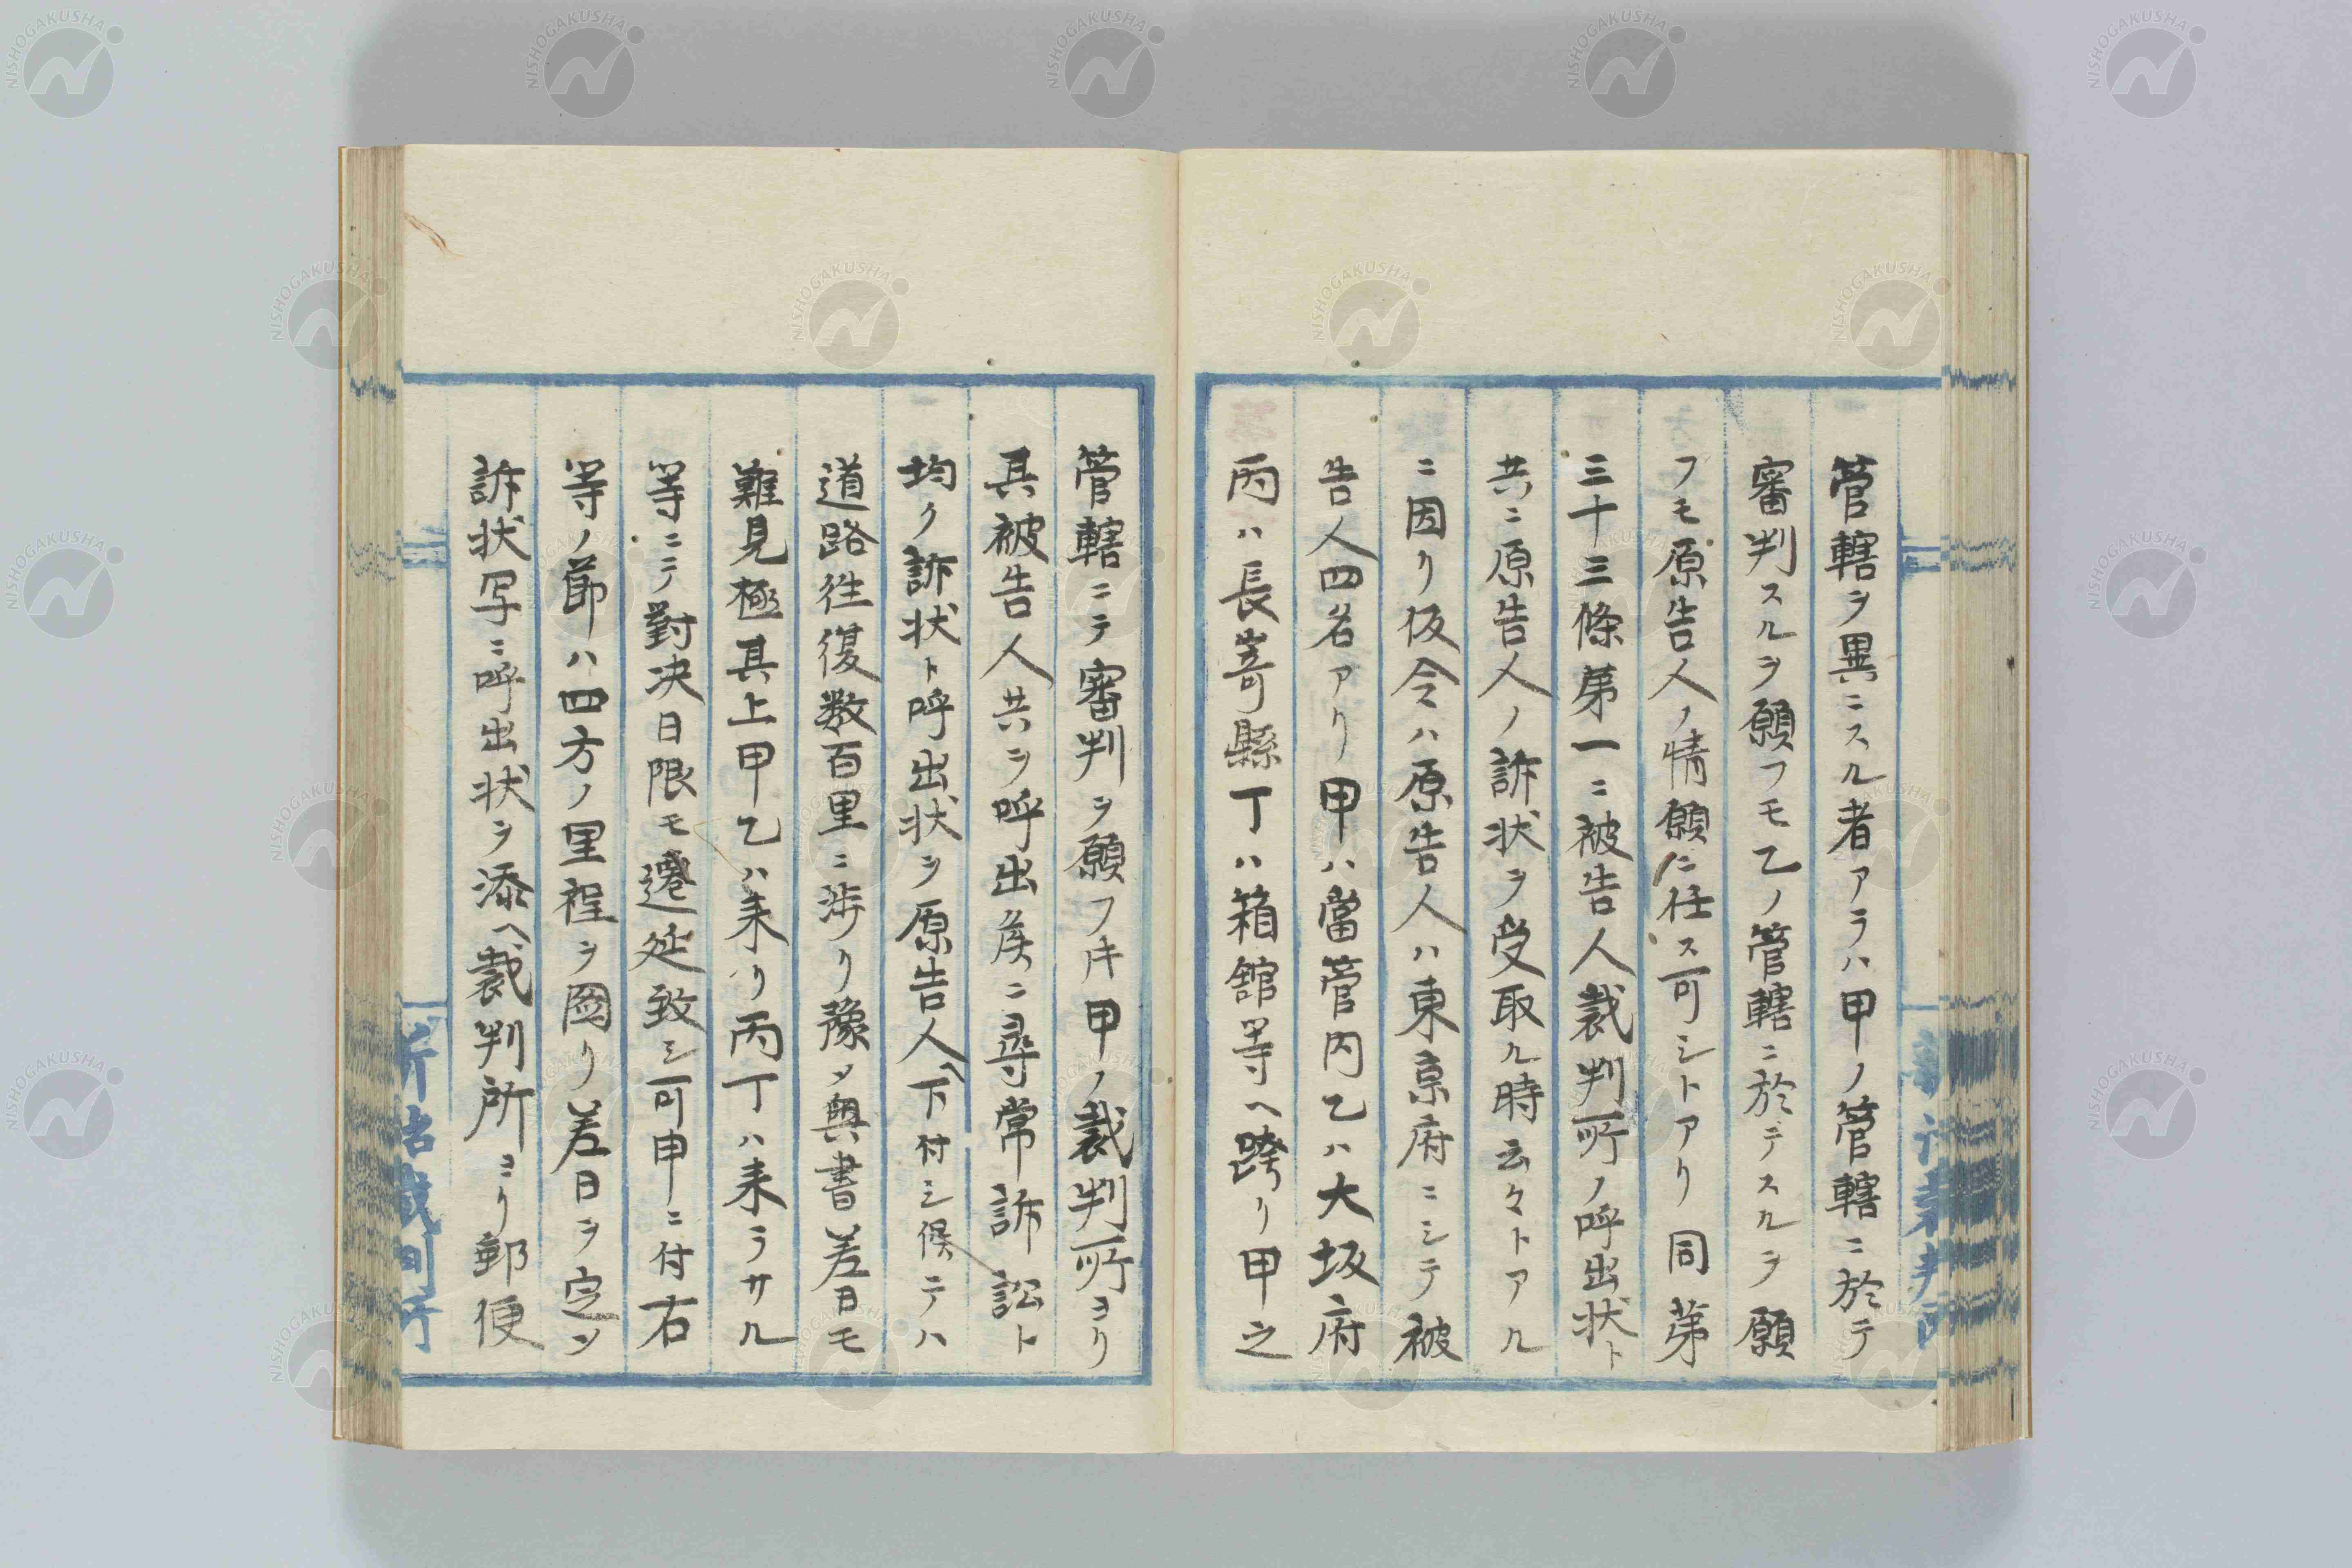 管轄ヲ異ニスル者アラハ甲ノ管轄ニ於テ
審判スルヲ願フモ乙ノ管轄ニ於テスルヲ願
フモ原告人ノ情願ニ任ス可シトアリ同第
三十三條第一ニ被告人裁判所ノ呼出状ト
共ニ原告人ノ訴状ヲ受取ル時云々トアル
ニ因リ仮令ハ原告人ハ東京府ニシテ被
告人四名アリ甲ハ當管内乙ハ大坂府
丙ハ長嵜縣丁ハ箱舘等ヘ跨リ甲之
管轄ニテ審判ヲ願フキ甲ノ裁判所ヨリ
其被告人共ヲ呼出矦ニ尋常訴訟ト
均ク訴状ト呼出状ヲ原告人ヘ下付シ候テハ
道路徃復数百里ニ渉リ豫メ奥書差日モ
難見極其上甲乙ハ来リ丙丁ハ来ラサル
等ニテ對决日限モ遷延致シ可申ニ付右
等ノ節ハ四方ノ里程ヲ圖リ差日ヲ定メ
訴状写ニ呼出状ヲ添ヘ裁判所ヨリ郵便
NISHOGAKUSHA